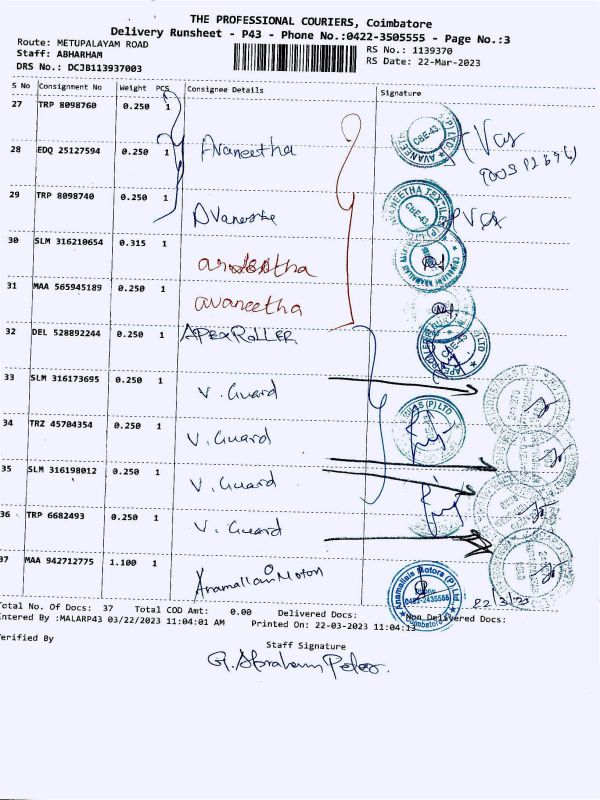 THE PROFESSIONAL COURIERS, Coimbatore
Delivery Runsheet - P43 - Phone No.:0422-3505555 - Page No.:3
Route: METUPALAYAM ROAD
RS No.: 1139370
Staff: ABHARHAM
RS Date: 22-Mar-2023
DRS No.: DCJB113937003
S No Consignment No Weight PCS Consignee Details Signature
27 TRP 8098760 0.250 1
28 EDQ 25127594 0.250 1 Avaneetha
29 TRP 8098740 0.250 1 Avaneetha
30 SLM 316210654 0.315 1
31 MAA 565945189 0.250 1 avaneetha
32 DEL 528892244 0.250 1 APEX ROLLER
33 SLM 316173695 0.250 1 V. Guard
34 TRZ 45704354 0.250 1 V. Guard
35 SLM 316198012 0.250 1 V. Guard
36 TRP 6682493 0.250 1 V. Guard
37 MAA 942712775 1.100 1 Anamallai Motors
AVANEETHA TEXTILES (P) LTD
CBE-43
Anamallais Motors (P) Ltd.,
0422-2435555
Coimbatore
22/3/23
Total No. Of Docs: 37 Total COD Amt: 0.00 Delivered Docs: Non Delivered Docs:
Entered By :MALARP43 03/22/2023 11:04:01 AM Printed On: 22-03-2023 11:04:13
Verified By
Staff Signature
G. Abraham Peter.